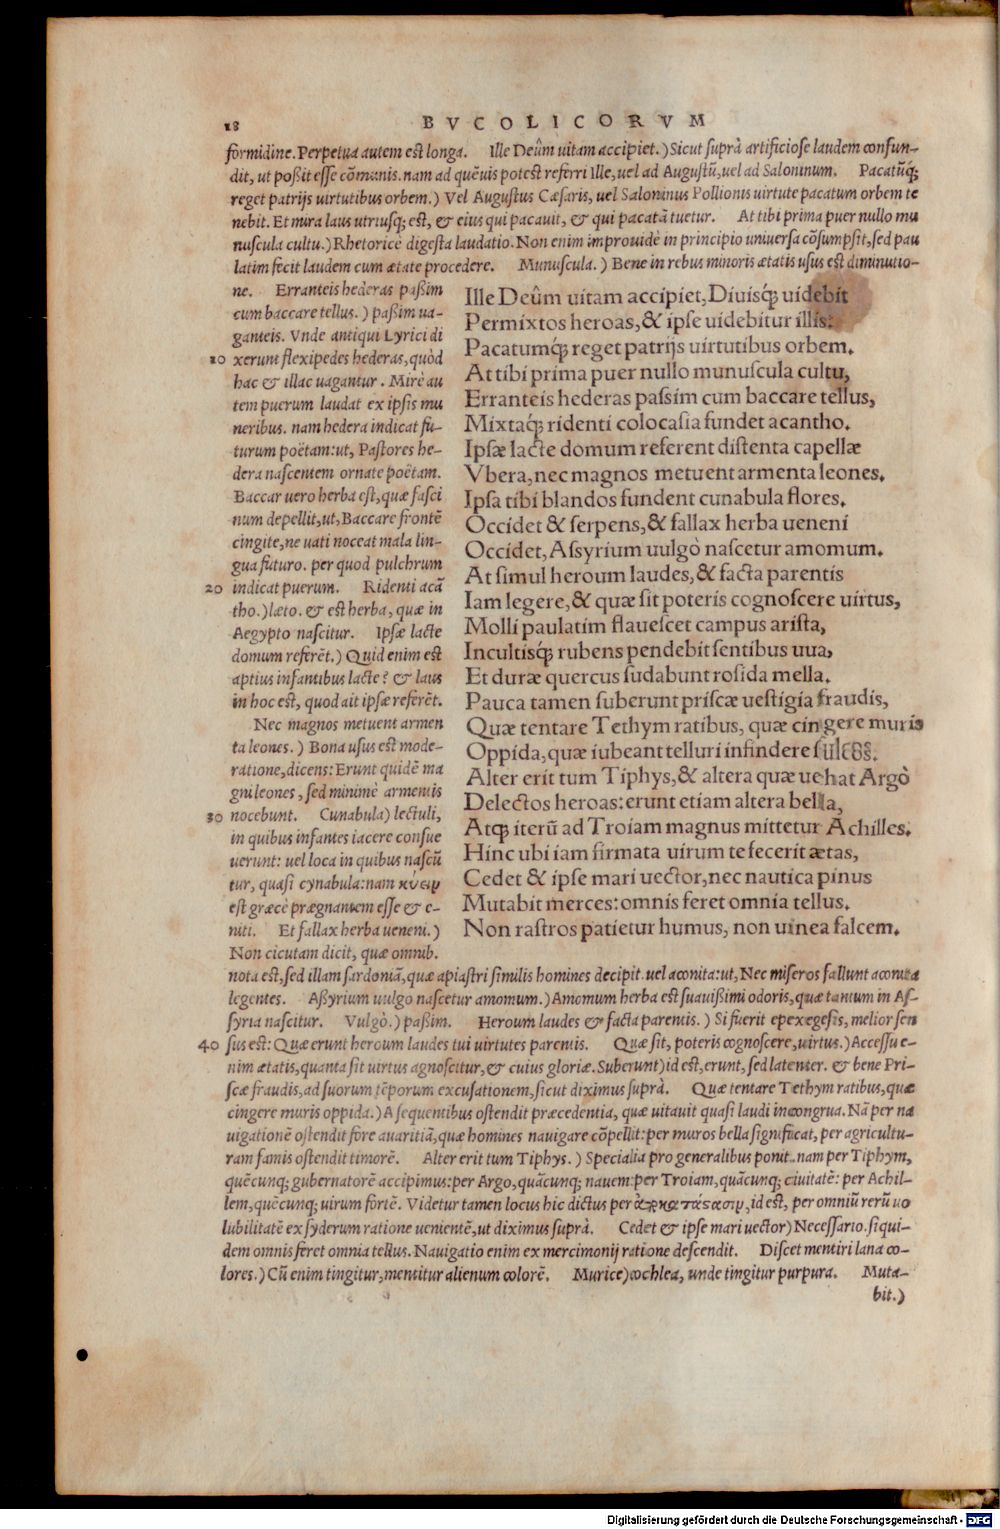 18 BVCOLICORVM
formidine. Perpetua autem est longa. Ille Deûm uitam accipiet.) Sicut suprà artificiose laudem confun-
dit, ut poßit esse cõmunis. nam ad quẽuis potest referri Ille, uel ad Augustũ, uel ad Saloninum. Pacatũq́;
reget patrijs uirtutibus orbem.) Vel Augustus Cæsaris, uel Saloninus Pollionis uirtute pacatum orbem te
nebit. Et mira laus utriusq; est, & eius qui pacauit, & qui pacatã tuetur. At tibi prima puer nullo mu
nuscula cultu.) Rhetoricè digesta laudatio. Non enim improuidè in principio uniuersa cõsumpsit, sed pau
latim fecit laudem cum ætate procedere. Munuscula.) Bene in rebus minoris ætatis usus est diminutio-
ne. Erranteis hederas paßim
cum baccare tellus.) paßim ua-
ganteis. Vnde antiqui Lyrici di
10 xerunt flexipedes hederas, quòd
hac & illac uagantur. Mirè au
tem puerum laudat ex ipsis mu
neribus. nam hedera indicat fu-
turum poëtam: ut, Pastores he-
dera nascentem ornate poëtam.
Baccar uero herba est, quæ fasci
num depellit, ut, Baccare frontẽ
cingite, ne uati noceat mala lin-
gua futuro. per quod pulchrum
20 indicat puerum. Ridenti acã
tho.) læto. & est herba, quæ in
Aegypto nascitur. Ipsæ lacte
domum referẽt.) Quid enim est
aptius infantibus lacte? & laus
in hoc est, quod ait ipsæ referẽt.
Nec magnos metuent armen
ta leones.) Bona usus est mode-
ratione, dicens: Erunt quidẽ ma
gni leones, sed minimè armentis
30 nocebunt. Cunabula) lectuli,
in quibus infantes iacere consue
uerunt: uel loca in quibus nascũ
tur, quasi cynabula: nam κύειν
est græcè prægnantem esse & e-
niti. Et fallax herba ueneni.)
Non cicutam dicit, quæ omnib.
Ille Deûm uitam accipiet, Diuisq́; uidebit
Permixtos heroas, & ipse uidebitur illis:
Pacatumq́; reget patrijs uirtutibus orbem.
At tibi prima puer nullo munuscula cultu,
Erranteis hederas passim cum baccare tellus,
Mixtaq́; ridenti colocasia fundet acantho.
Ipsæ lacte domum referent distenta capellæ
Vbera, nec magnos metuent armenta leones.
Ipsa tibi blandos fundent cunabula flores.
Occidet & serpens, & fallax herba ueneni
Occidet, Assyrium uulgò nascetur amomum.
At simul heroum laudes, & facta parentis
Iam legere, & quæ sit poteris cognoscere uirtus,
Molli paulatim flauescet campus arista,
Incultisq́; rubens pendebit sentibus uua,
Et duræ quercus sudabunt rosida mella.
Pauca tamen suberunt priscæ uestigia fraudis,
Quæ tentare Tethym ratibus, quæ cingere muris
Oppida, quæ iubeant telluri infindere sulcos.
Alter erit tum Tiphys, & altera quæ uehat Argò
Delectos heroas: erunt etiam altera bella,
Atq; iterũ ad Troiam magnus mittetur Achilles.
Hinc ubi iam firmata uirum te fecerit ætas,
Cedet & ipse mari uector, nec nautica pinus
Mutabit merces: omnis feret omnia tellus.
Non rastros patietur humus, non uinea falcem.
nota est, sed illam sardoniã, quæ apiastri similis homines decipit. uel aconita: ut, Nec miseros fallunt aconita
legentes. Aßyrium uulgo nascetur amomum.) Amomum herba est suauißimi odoris, quæ tantum in As-
syria nascitur. Vulgò.) paßim. Heroum laudes & facta parentis.) Si fuerit epexegesis, melior sen
40 sus est: Quæ erunt heroum laudes tui uirtutes parentis. Quæ sit, poteris cognoscere, uirtus.) Accessu e-
nim ætatis, quanta sit uirtus agnoscitur, & cuius gloriæ. Suberunt) id est, erunt, sed latenter. & bene Pri-
scæ fraudis, ad suorum tẽporum excusationem, sicut diximus suprà. Quæ tentare Tethym ratibus, quæ
cingere muris oppida.) A sequentibus ostendit præcedentia, quæ uitauit quasi laudi incongrua. Nã per na
uigationẽ ostendit fore auaritiã, quæ homines nauigare cõpellit: per muros bella significat, per agricultu-
ram famis ostendit timorẽ. Alter erit tum Tiphys.) Specialia pro generalibus ponit. nam per Tiphym,
quẽcunq; gubernatorẽ accipimus: per Argo, quãcunq; nauem: per Troiam, quãcunq; ciuitatẽ: per Achil-
lem, quẽcunq; uirum fortẽ. Videtur tamen locus hic dictus per ἀποκατάστασιν, id est, per omniũ rerũ uo
lubilitatẽ ex syderum ratione uenientẽ, ut diximus suprà. Cedet & ipse mari uector) Necessario. siqui-
dem omnis feret omnia tellus. Nauigatio enim ex mercimonij ratione descendit. Discet mentiri lana co-
lores.) Cũ enim tingitur, mentitur alienum colorẽ. Murice) cochlea, unde tingitur purpura. Muta-
bit.)
Digitalisierung gefördert durch die Deutsche Forschungsgemeinschaft - DFG